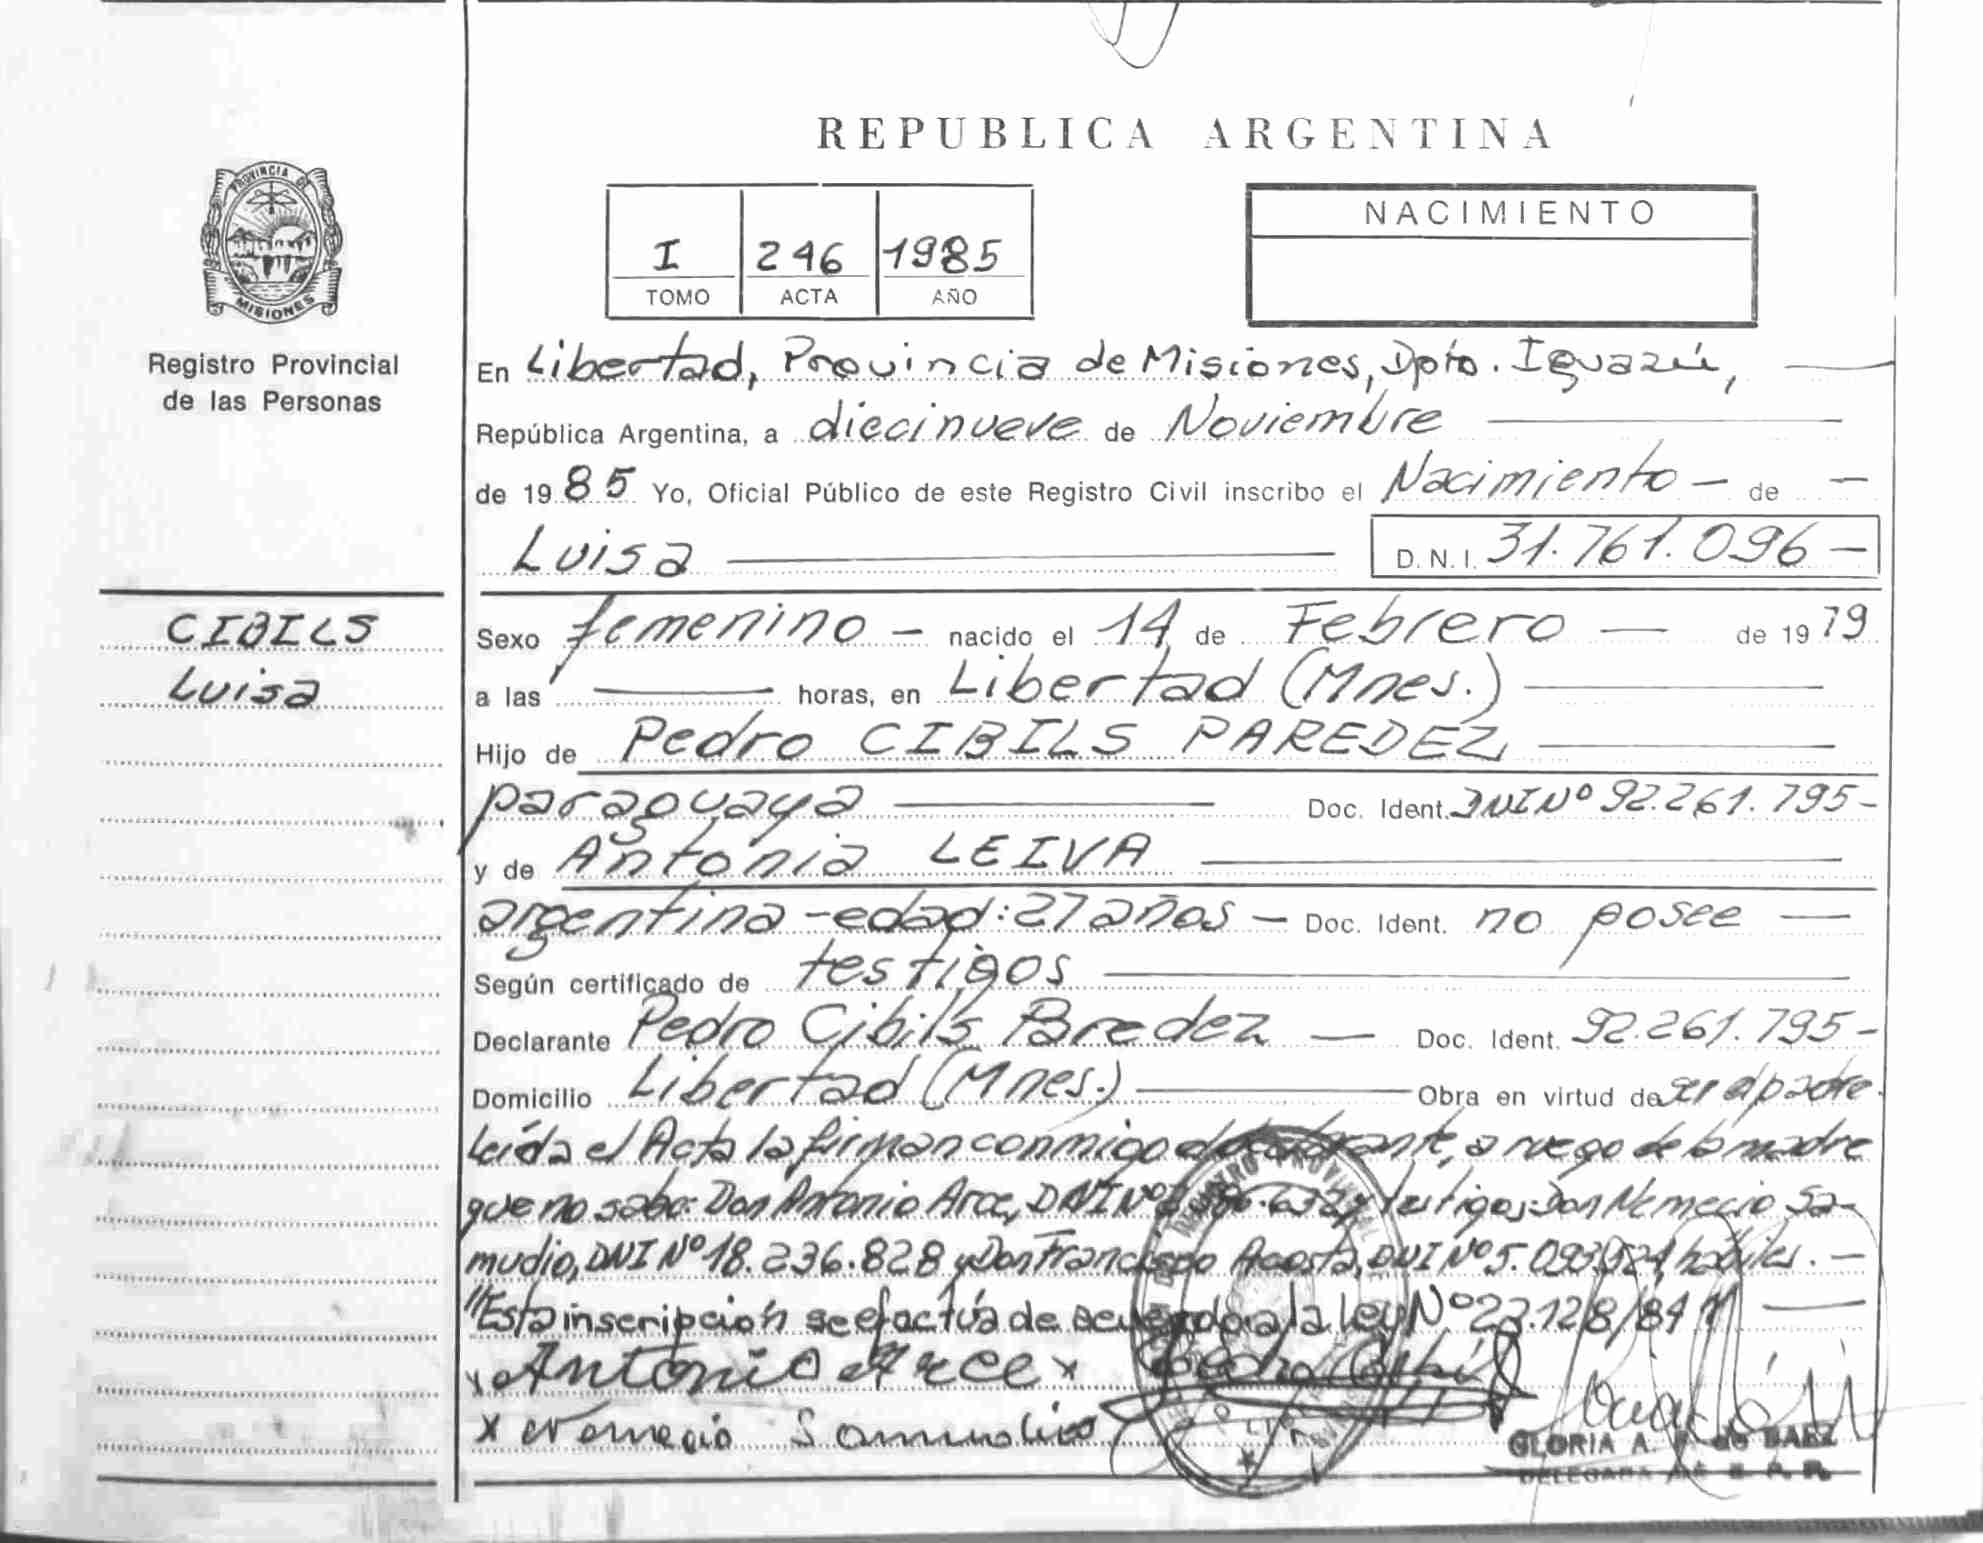 REPUBLICA ARGENTINA
PROVINCIA DE
MISIONES
Registro Provincial
de las Personas
I 246 1985
TOMO ACTA AÑO
NACIMIENTO
En Libertad, Provincia de Misiones, Dpto. Iguazú,
República Argentina, a diecinueve de Noviembre
de 1985 Yo, Oficial Público de este Registro Civil inscribo el Nacimiento - de -
Luisa D. N. I. 31.761.096 -
CIBILS
Luisa
Sexo femenino - nacido el 14 de Febrero - de 1979
a las - horas, en Libertad (Mnes.)
Hijo de Pedro CIBILS PAREDEZ,
paraguaya Doc. Ident. DNI Nº 92.261.795-
y de Antonia LEIVA
argentina - edad: 27 años - Doc. Ident. no posee
Según certificado de testigos
Declarante Pedro Cibils Paredez - Doc. Ident. 92.261.795-
Domicilio Libertad (Mnes.) Obra en virtud de ser el padre.
Leída el Acta la firman conmigo el declarante, a ruego de la madre
que no sabe: Don Antonio Arce, DNI Nº y testigos: Don Nemecio Sa-
mudio, DNI Nº 18.236.828 y Don Francisco Acosta, DNI Nº 5.093.924, hábiles. -
"Esta inscripción se efectúa de acuerdo a la ley Nº 23.128/84"
x Antonio Arce x Pedro Cibil
x Nemecio Samudio
GLORIA A. de BAEZ
DELEGADA